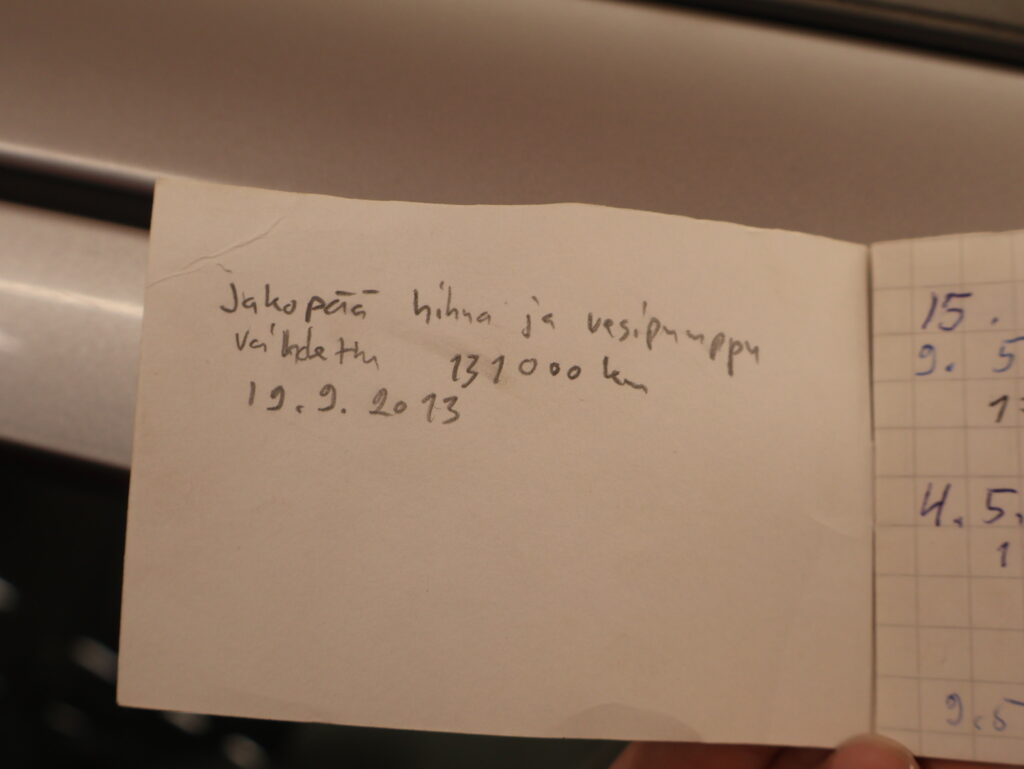 Jakopää hihna ja vesipumppu
vaihdettu 131000 km
19.9.2013
15.
9. 5
1
4. 5.
1
9.5